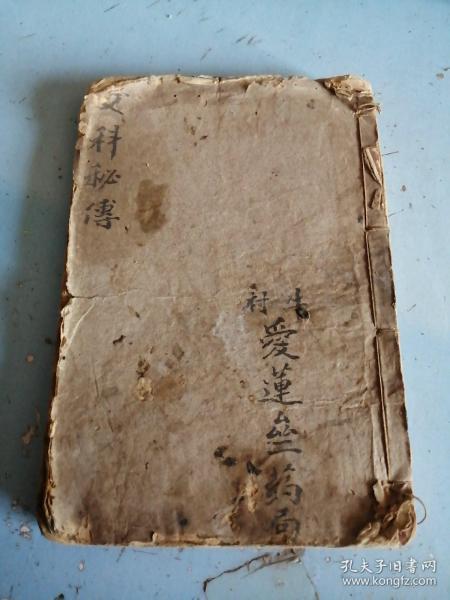 科秘傳
村
愛蓮堂药局
孔夫子旧书网
www.kongfz.com